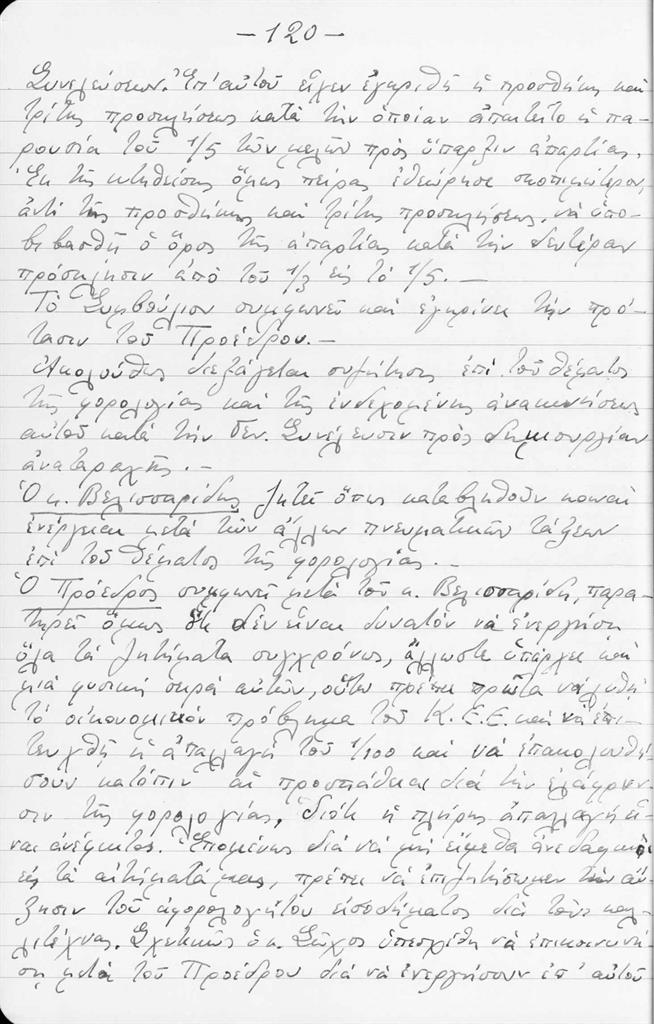 -120-
Συνελεύσεων. Ἐπ' αὐτοῦ εἶχεν ἐγκριθῆ ἡ προσθήκη καὶ
τρίτης προσκλήσεως κατὰ τὴν ὁποίαν ἀπαιτεῖτο ἡ πα-
ρουσία τοῦ 1/5 τῶν μελῶν πρὸς ὕπαρξιν ἀπαρτίας.
Ἐκ τῆς κτηθείσης ὅμως πείρας ἐθεώρησε σκοπιμώτερον,
ἀντὶ τῆς προσθήκης καὶ τρίτης προσκλήσεως, νὰ ὑπο-
βιβασθῆ ὁ ὅρος τῆς ἀπαρτίας κατὰ τὴν δευτέραν
πρόσκλησιν ἀπὸ τοῦ 1/3 εἰς τὸ 1/5.—
Τὸ Συμβούλιον συμφωνεῖ καὶ ἐγκρίνει τὴν πρό-
τασιν τοῦ Προέδρου.—
Ἀκολούθως διεξάγεται συζήτησις ἐπὶ τοῦ θέματος
τῆς φορολογίας καὶ τῆς ἐνδεχομένης ἀνακινήσεως
αὐτοῦ κατὰ τὴν Γεν. Συνέλευσιν πρὸς δημιουργίαν
ἀναταραχῆς.—
Ὁ κ. Βελισσαρίδης ζητεῖ ὅπως καταβληθοῦν κοιναὶ
ἐνέργειαι μετὰ τῶν ἄλλων πνευματικῶν τάξεων
ἐπὶ τοῦ θέματος τῆς φορολογίας.—
Ὁ Πρόεδρος συμφωνεῖ μετὰ τοῦ κ. Βελισσαρίδη, παρα-
τηρεῖ ὅμως ὅτι δὲν εἶναι δυνατόν νὰ ἐνεργήση
ὅλα τὰ ζητήματα συγχρόνως, ἄλλωστε ὑπάρχει καὶ
μιὰ φυσικὴ σειρὰ αὐτῶν, οὕτω πρέπει πρῶτα νὰ λυθῆ
τὸ οἰκονομικὸν πρόβλημα τοῦ Κ.Ε.Ε. καὶ νὰ ἐπι-
τευχθῆ ἡ ἀπαλλαγὴ τοῦ 1/100 καὶ νὰ ἐπακολουθή-
σουν κατόπιν αἱ προσπάθειαι διὰ τὴν ἐλάφρυν-
σιν τῆς φορολογίας, διότι ἡ πλήρης ἀπαλλαγὴ εἶ-
ναι ἀνέφικτος. Ἑπομένως διὰ νὰ μὴ εἴμεθα ἀνεδαφικοὶ
εἰς τὰ αἰτήματά μας, πρέπει νὰ ἐπιζητήσωμεν τὴν αὔ-
ξησιν τοῦ ἀφορολογήτου εἰσοδήματος διὰ τοὺς καλ-
λιτέχνας. Σχετικῶς ὁ κ. Σῶχος ὑπεσχέθη νὰ ἐπικοινωνή-
ση μετὰ τοῦ Προέδρου διὰ νὰ ἐνεργήσουν ἐπ' αὐτοῦ